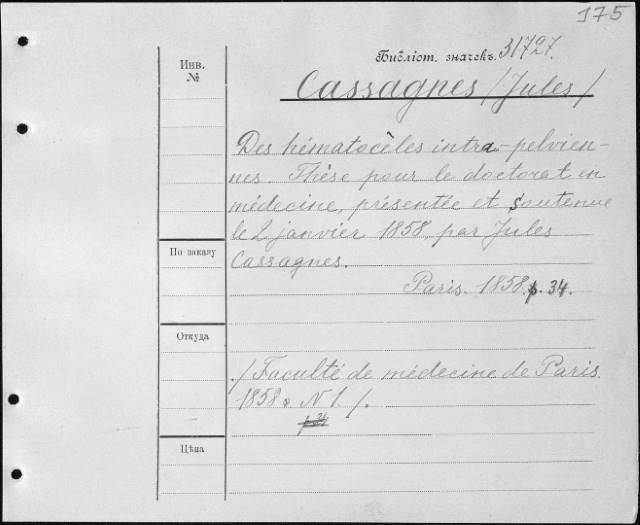 175
Библіот. значекъ. 31727.
Инв.
№
Cassagnes /Jules/
Des hématocèles intra-pelvien-
nes. Thèse pour le doctorat en
médecine, présentée et soutenue
le 2 janvier 1858, par Jules
Cassagnes.
По заказу
Paris. 1858. p. 34.
Откуда
/Faculté de médecine de Paris.
1858. N 1./.
Цѣна